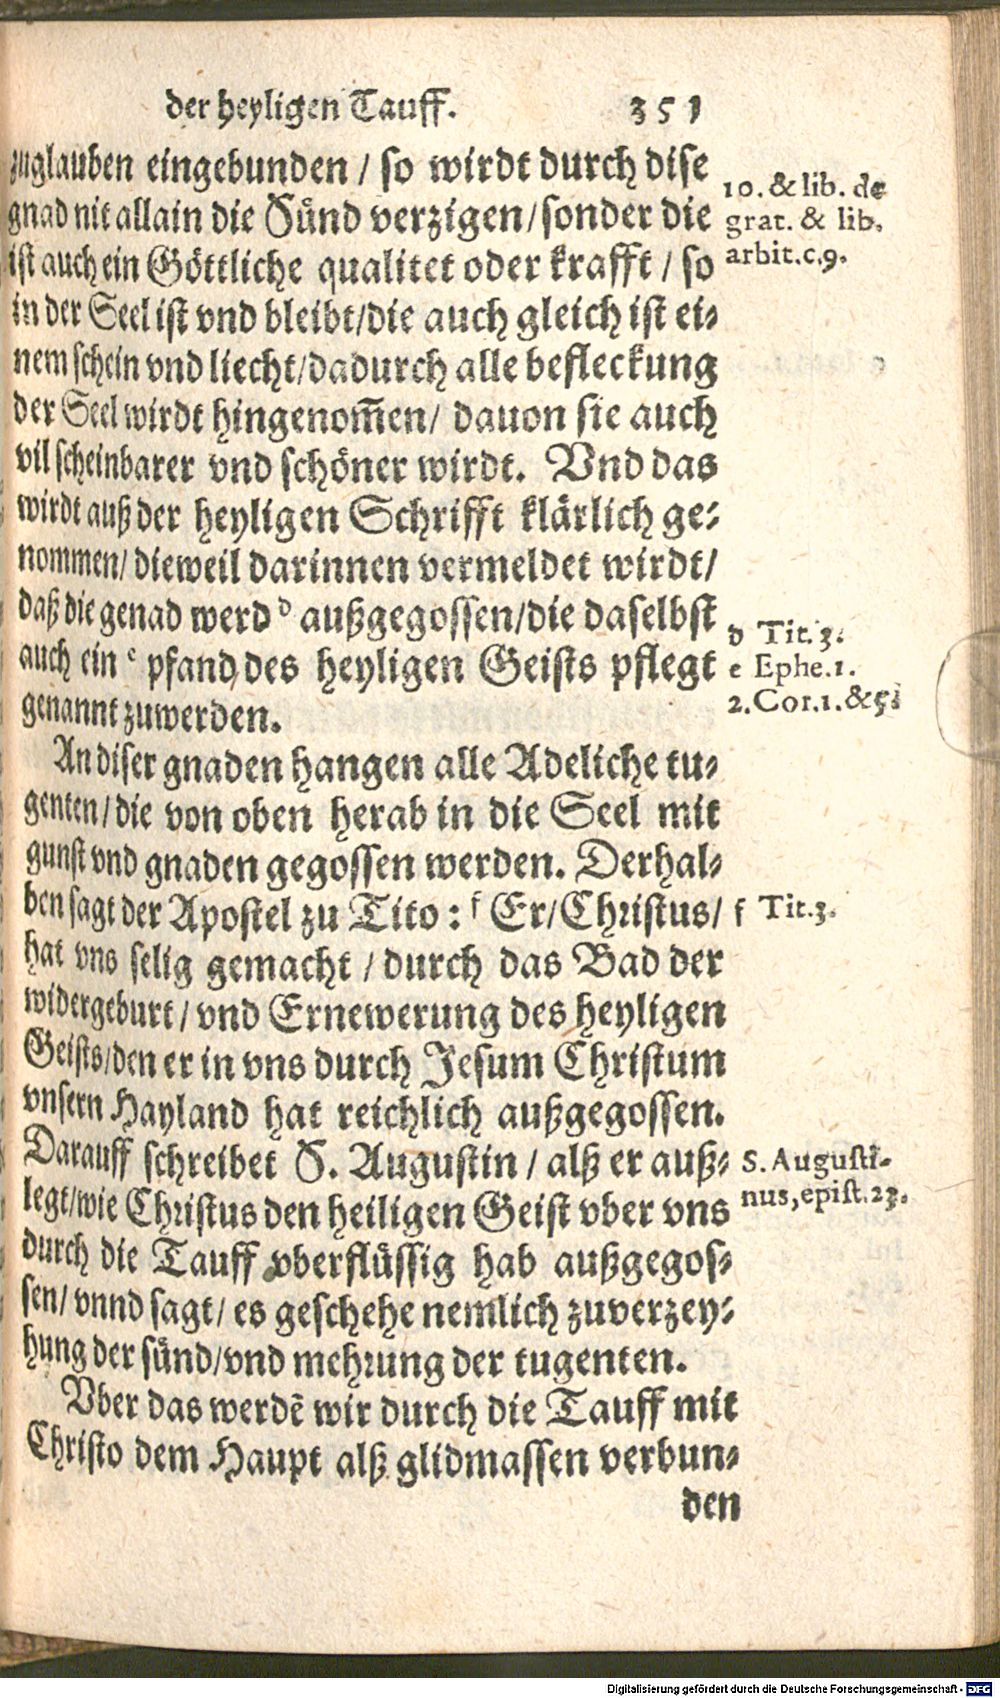 der heyligen Tauff. 351
zuglauben eingebunden / so wirdt durch dise
gnad nit allain die Sünd verzigen/sonder die
ist auch ein Göttliche qualitet oder krafft / so
in der Seel ist vnd bleibt/die auch gleich ist ei-
nem schein vnd liecht/dadurch alle befleckung
der Seel wirdt hingenom̄en/ dauon sie auch
vil scheinbarer vnd schöner wirdt. Vnd das
wirdt auß der heyligen Schrifft klärlich ge-
nommen/ dieweil darinnen vermeldet wirdt/
daß die genad werd ᵈ außgegossen/die daselbst
auch ein ᵉ pfand des heyligen Geists pflegt
genannt zuwerden.
An diser gnaden hangen alle Adeliche tu-
genten/die von oben herab in die Seel mit
gunst vnd gnaden gegossen werden. Derhal-
ben sagt der Apostel zu Tito: ᶠ Er/Christus/
hat vns selig gemacht / durch das Bad der
widergeburt/ vnd Ernewerung des heyligen
Geists/den er in vns durch Jesum Christum
vnsern Hayland hat reichlich außgegossen.
Darauff schreibet S. Augustin / alß er auß-
legt/wie Christus den heiligen Geist vber vns
durch die Tauff vberflüssig hab außgegos-
sen/ vnnd sagt/ es geschehe nemlich zuverzey-
hung der sünd/vnd mehrung der tugenten.
Vber das werdē wir durch die Tauff mit
Christo dem Haupt alß glidmassen verbun-
den
10. & lib. de
grat. & lib.
arbit.c.9.
d Tit.3.
e Ephe.1.
2.Cor.1.&5.
f Tit.3.
S. Augusti-
nus, epist.23.
Digitalisierung gefördert durch die Deutsche Forschungsgemeinschaft - DFG